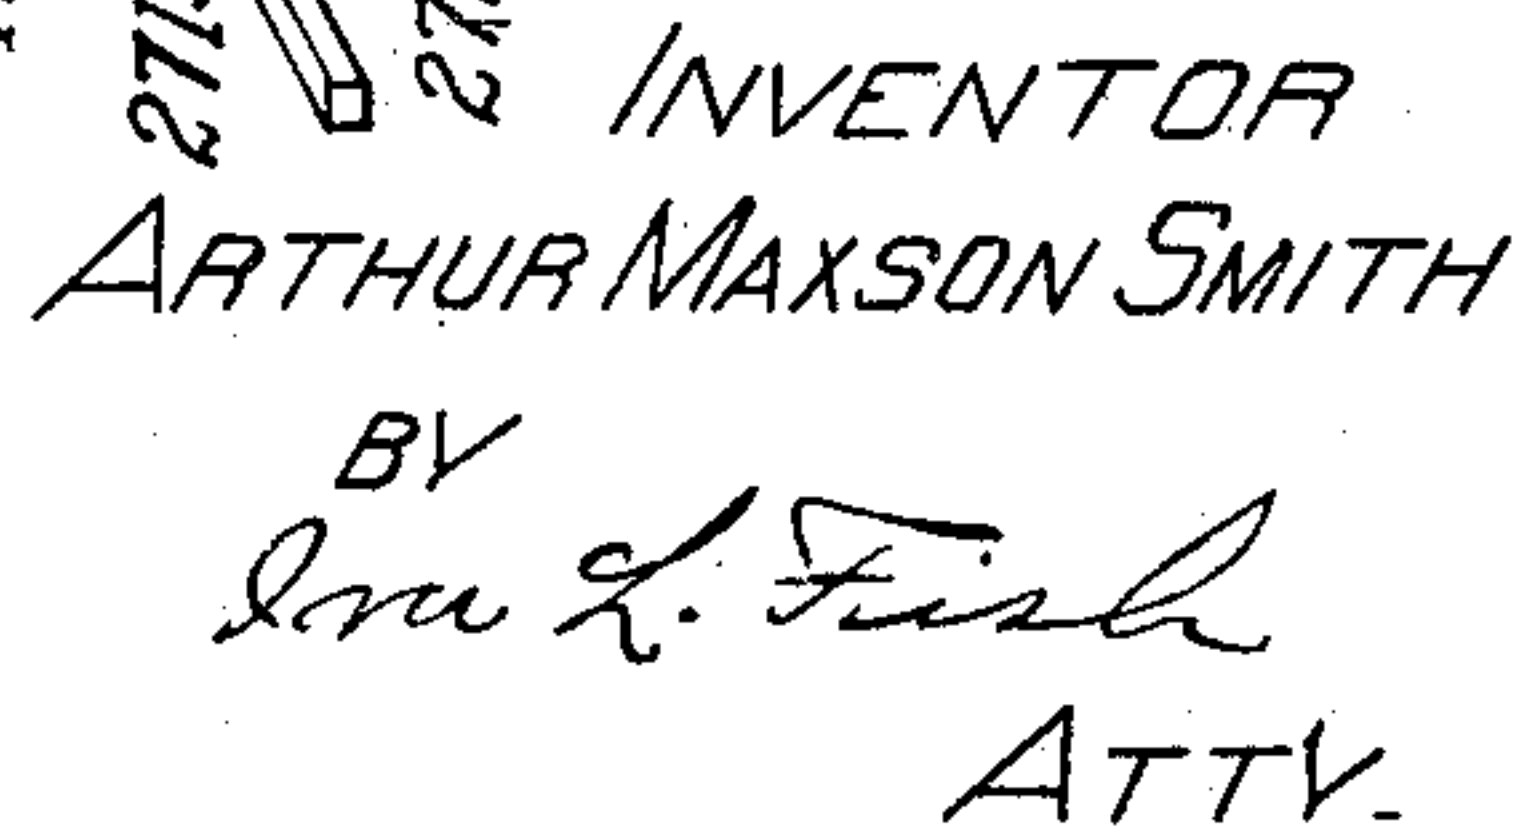 INVENTOR
ARTHUR MAXSON SMITH
BY
Ira L. Fish
ATTY.